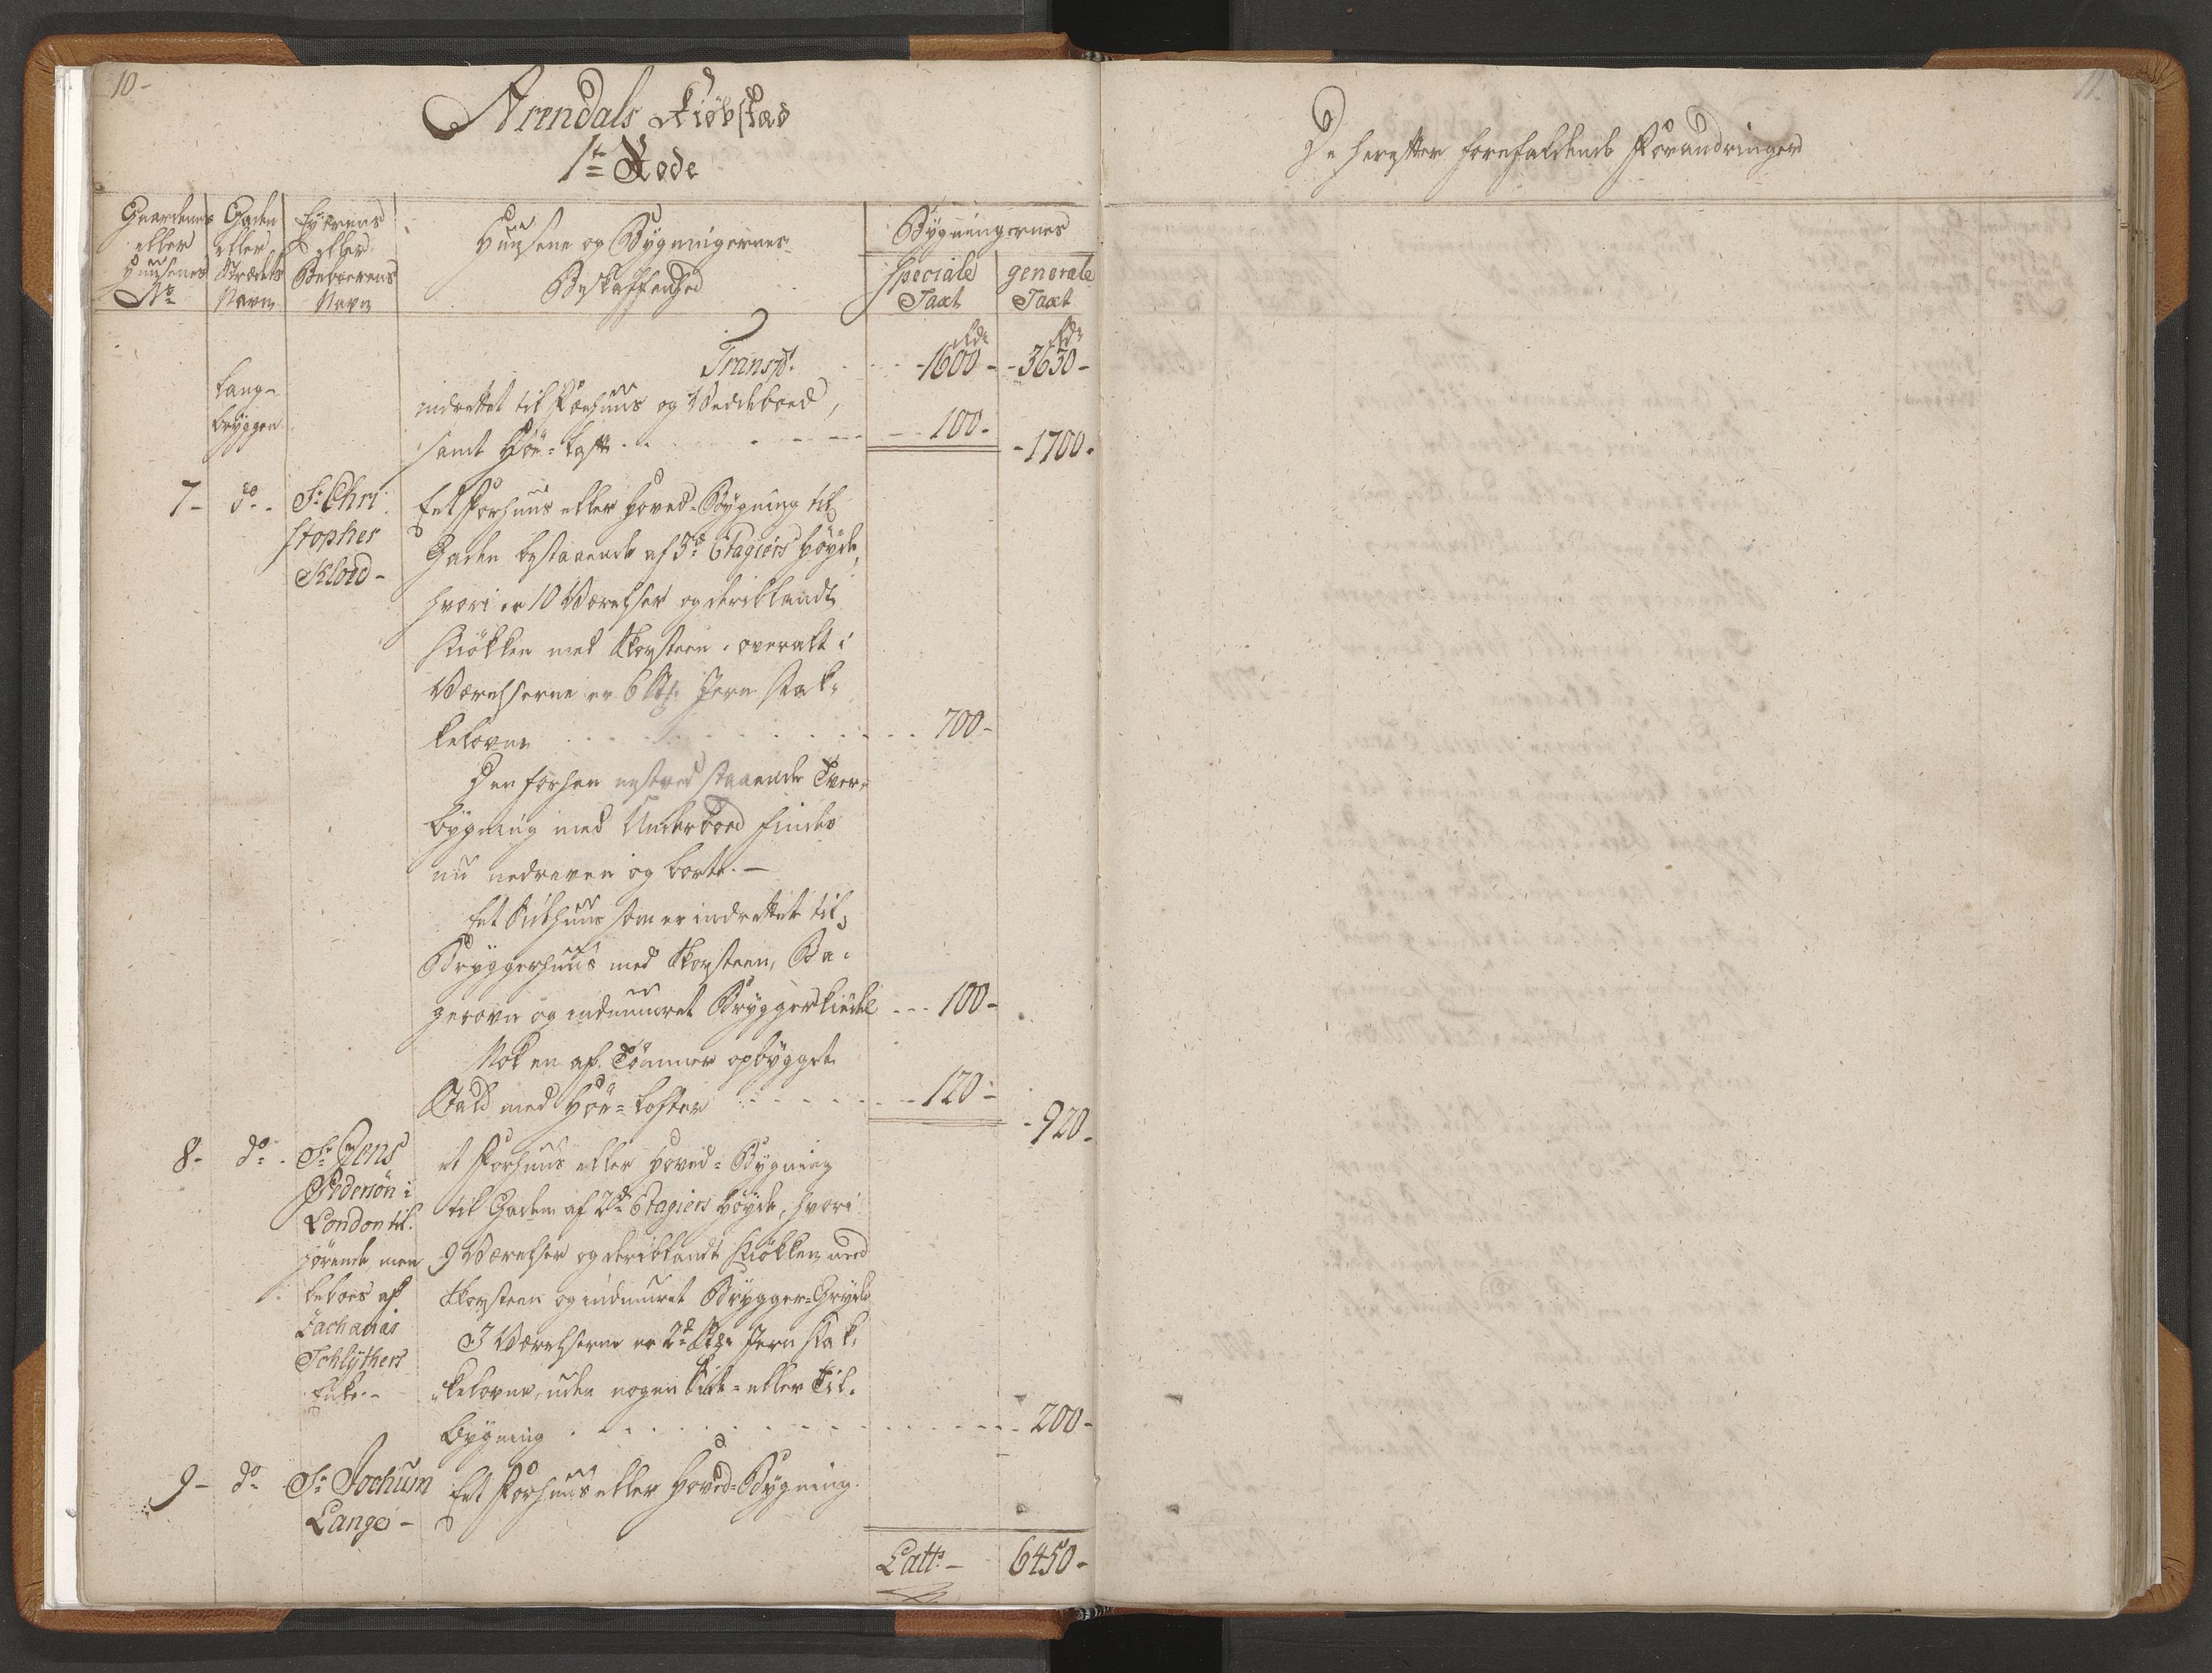 10-
Arendals Kiöbstad
1te Rode
Gaardenes
eller
Huusenes
No
Gaden
eller
Strædets
Navn
Eyerens
eller
Beboerens
Navn
Huusene og Bygningernes
Beskaffenhed
Bygningernes
speciale
Taxt
generale
Taxt
Rdr
Rdr
Transpt. -1600- -3630-
Lang-
bryggen
indrettet til Fæehuus og Vedeboed,
samt Höe-Loft - - - 100- -1700-
7- do- Sr Chri-
stopher
Kloed-
Eet Forhuus eller Hoved-Bygning til
Gaden bestaaende af 3de Etagiers Höyde,
hvori er 10 Værelser og deriblandt
Kiökken med Skorsteen, overalt i
Værelserne er 6 Stk. Jern Kak-
kelovne - - - 700-
Den forhen staaende Tver-
bygning med Underboed findes
nu nedreven og borte.-
Eet Sidehuus som er indrettet til
Bryggerhuus med Skorsteen, Ba-
gerovn og indmuuret Bryggerkiedel - - - 100-
Nok en af Tömmer opbygget
Stald med Höe-Lofter - - - 120- -920-
8- do- Sr Jens
Pedersön i
London til-
hörende, men
beboes af
Zacharias
Schlÿthers
Enke.-
et Forhuus eller Hoved-Bygning
til Gaden af 2de Etagiers Höyde, hvori
9 Værelser og deriblandt Kiökken med
Skorsteen og indmuuret Brygger-Gryde
I Værelserne er 2de Stk. Jern Kak-
kelovne, uden nogen Side- eller Til-
bygning - - - 200-
9- do- Sr Jochum
Lange-
Eet Forhuus eller Hoved-Bygning
Latts- 6450-
11.
De herefter forefaldende Forandringer